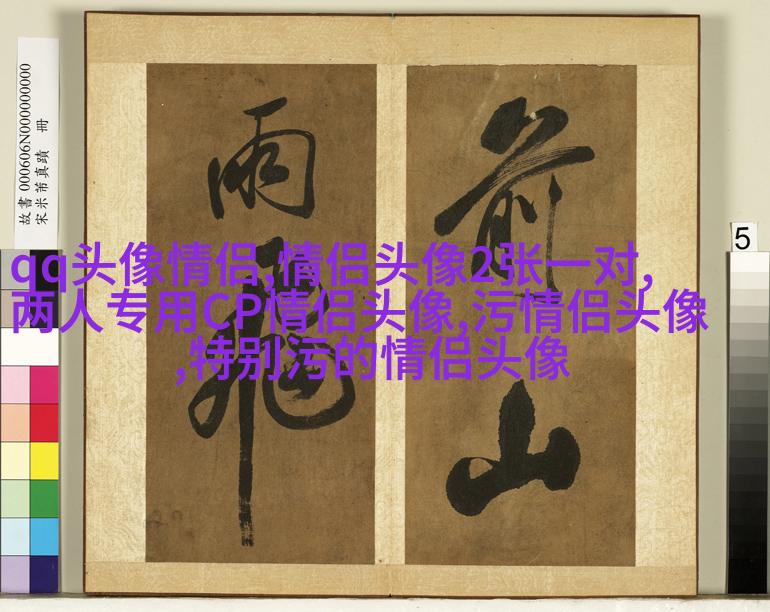 qq头像情侣,情侣头像2张一对,
两人专用CP情侣头像,污情侣头像
,特别污的情侣头像
前山
雨
故書 000606N000000000
宋米芾真蹟 冊
5